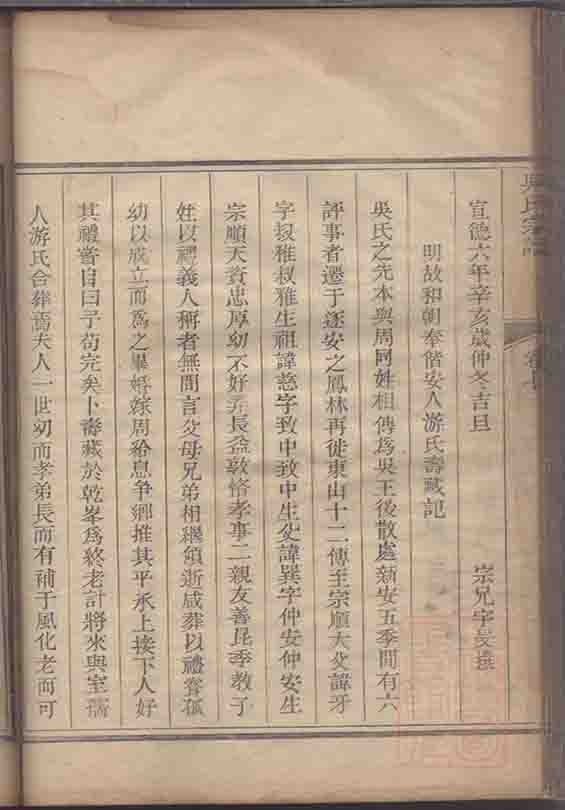 吳氏宗譜
卷七
宣德六年辛亥歲仲冬吉旦
宗兄字長撰
明故和朝奉偕安人游氏壽藏記
吳氏之先本與周同姓相傳爲吳王後散處新安五季間有六
評事者遷于逐安之鳳林再徙東山十二傳至宗順大父諱牙
字叔雅叔雅生祖諱慈字致中致中生父諱巽字仲安仲安生
宗順天資忠厚幼不好弄長益敦恪孝事二親友善昆季教子
姪以禮義人稱者無間言父母兄弟相繼頌逝咸葬以禮眷孤
幼以成立而爲之畢婚嫁周給息争鄉推其平承上接下人好
其禮嘗自曰予苟完矣卜壽藏於乾峯爲終老計將來與室孺
人游氏合葬焉夫人一世幼而孝弟長而有補于風化老而可